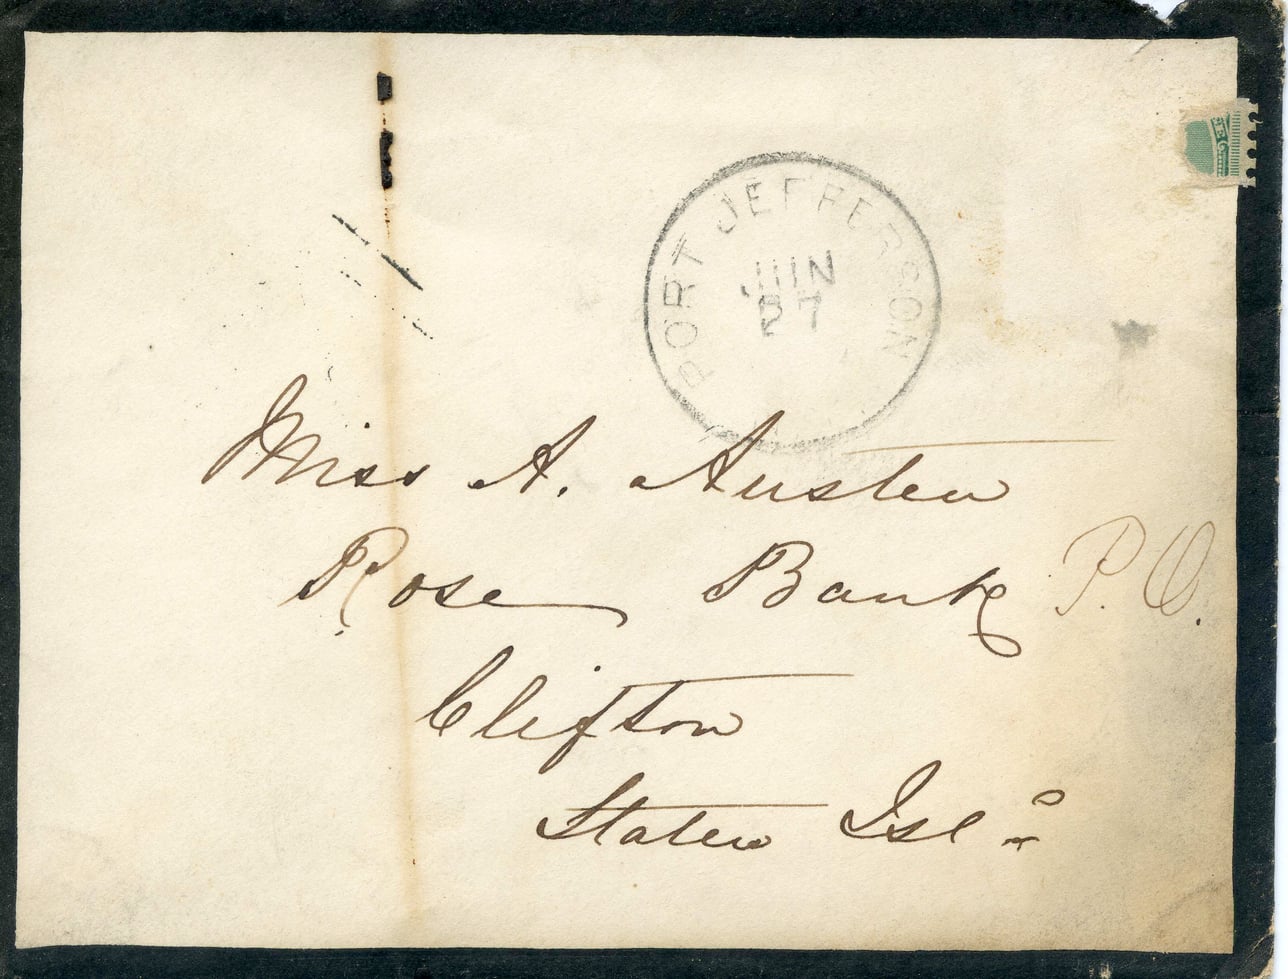 PORT JEFFERSON
JUN
27
Miss A. Austen
Rose Bank P.O.
Clifton
Staten Isld